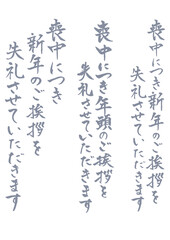 喪中につき新年のご挨拶を
失礼させていただきます
喪中につき年頭のご挨拶を
失礼させていただきます
喪中につき
新年のご挨拶を
失礼させていただきます